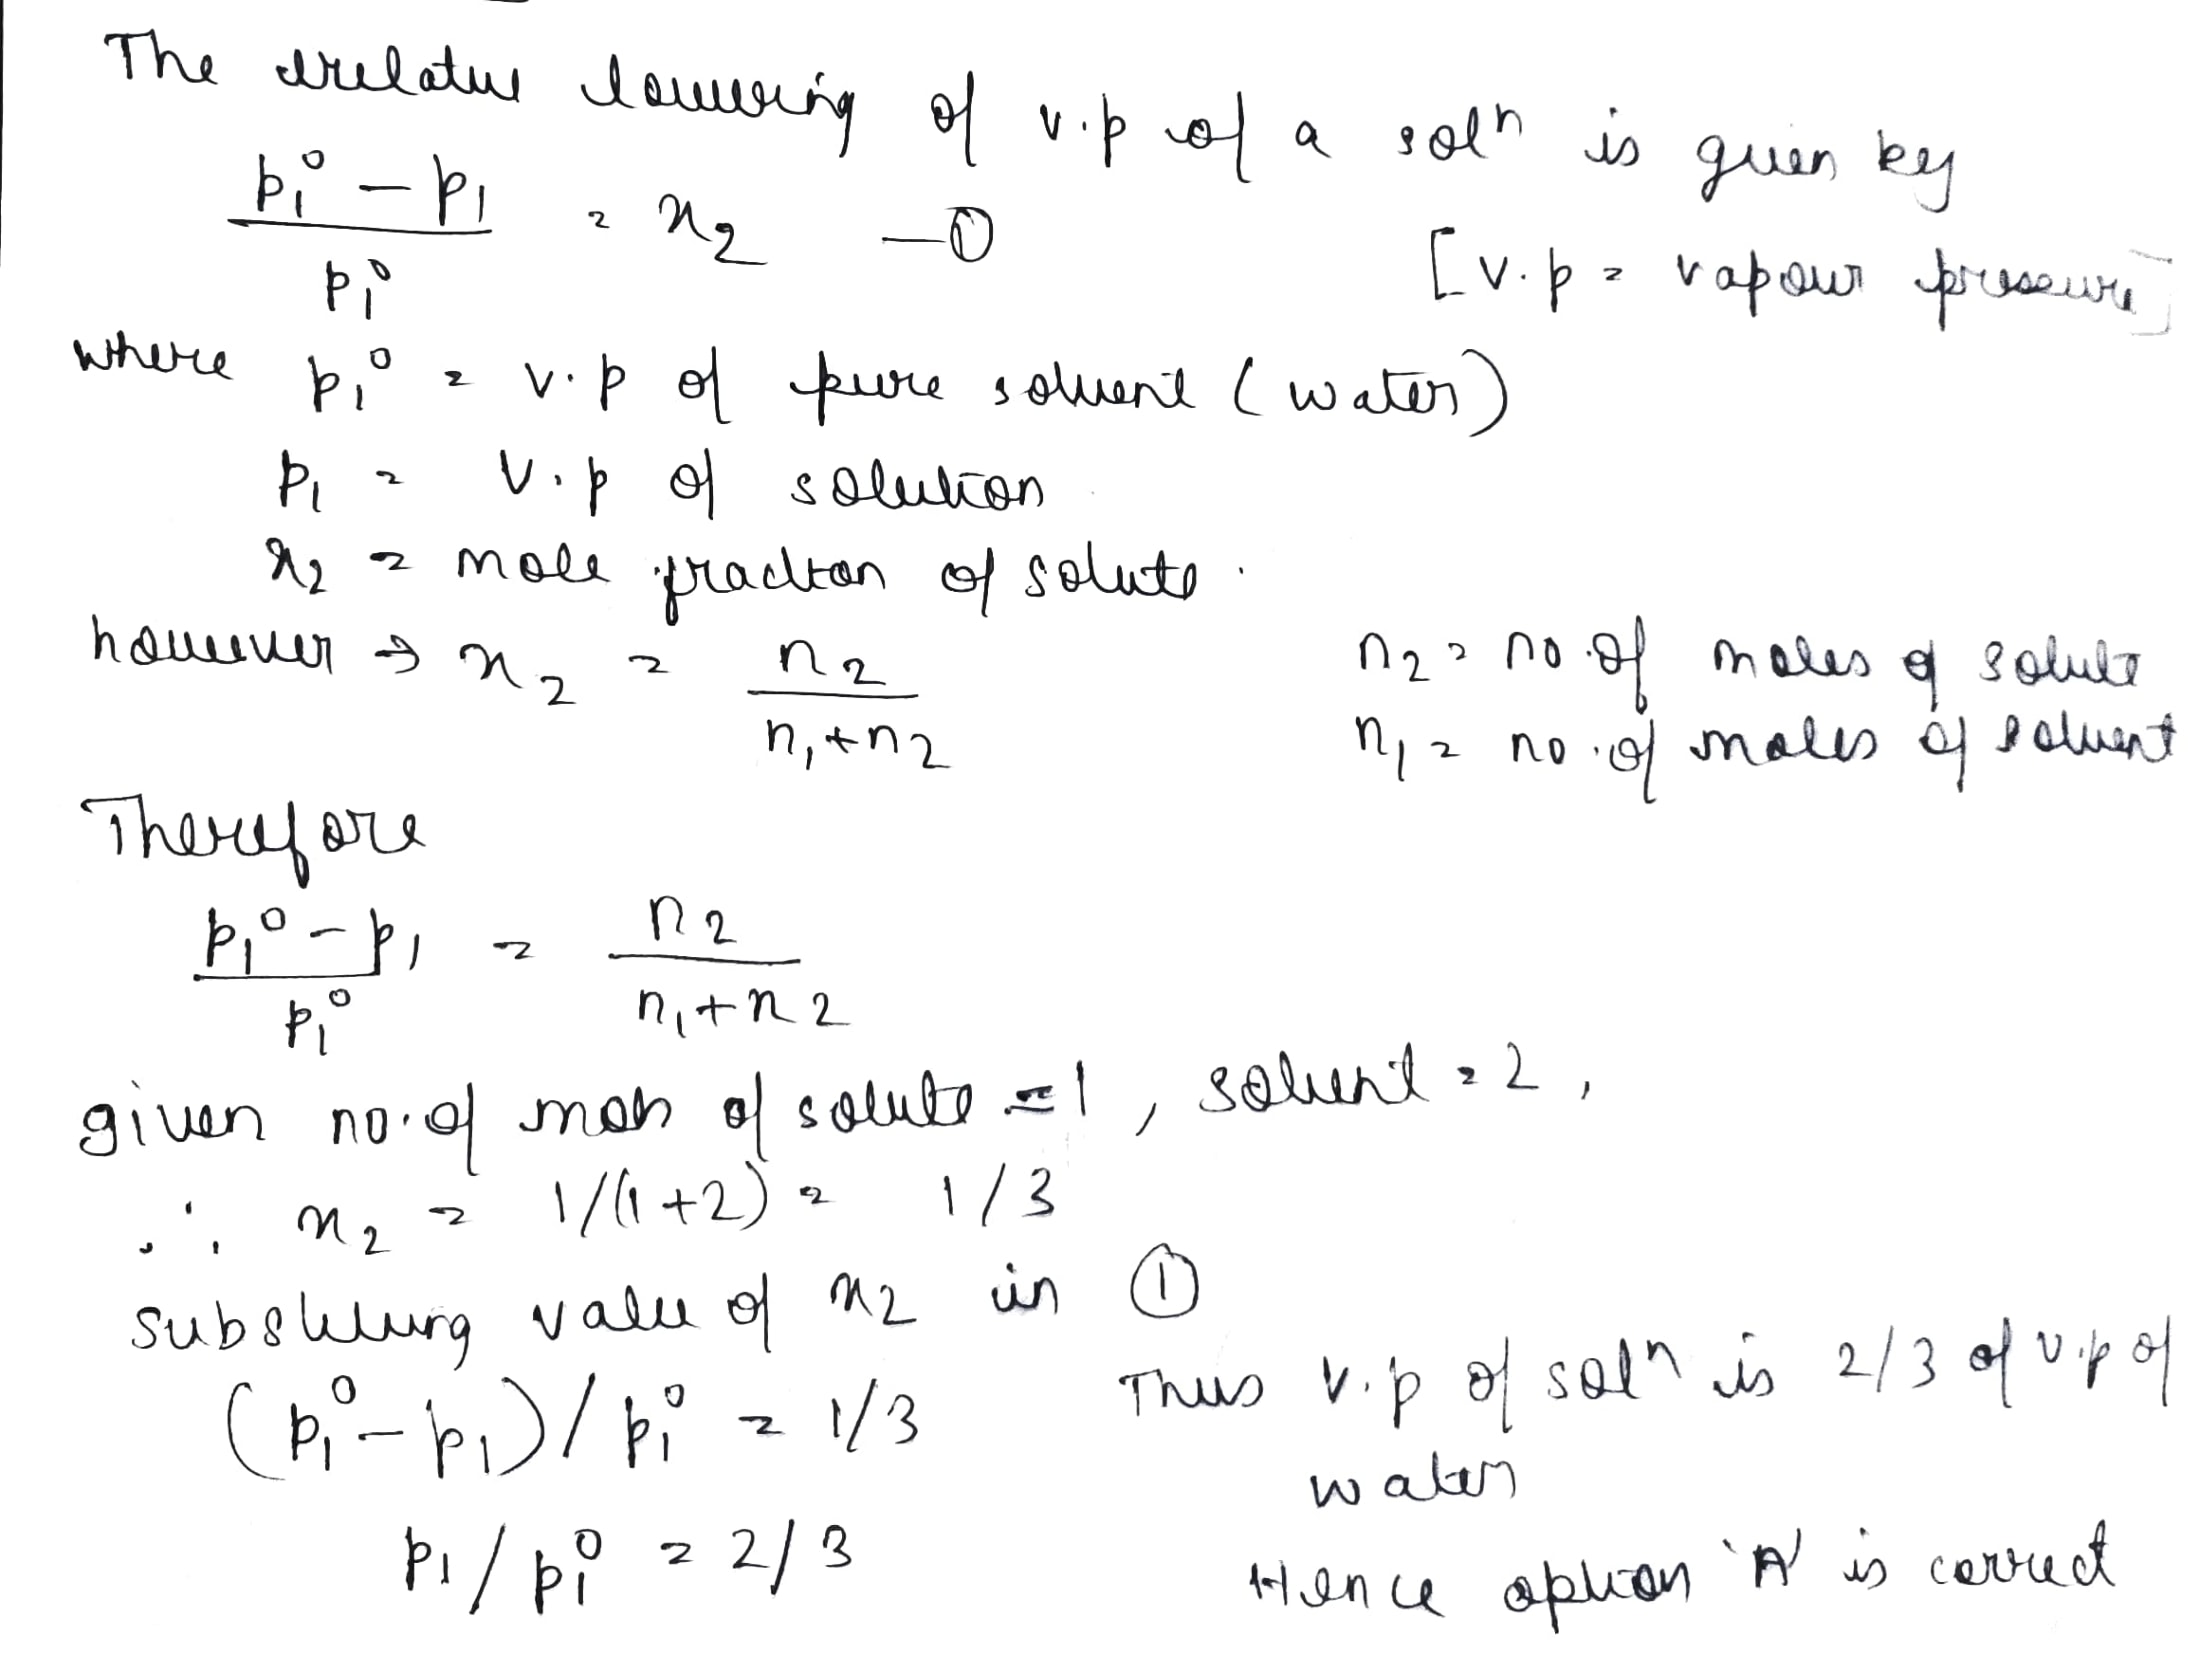 The relative lowering of v.p of a solⁿ is given by
p₁⁰ - p₁ / p₁⁰ = x₂ - ①
[v.p = vapour pressure]
where p₁⁰ = v.p of pure solvent (water)
p₁ = v.p of solution
x₂ = mole fraction of solute.
however → x₂ = n₂ / n₁+n₂
n₂ = no. of moles of solute
n₁ = no. of moles of solvent
Therefore
p₁⁰ - p₁ / p₁⁰ = n₂ / n₁+n₂
given no. of mols of solute = 1, solvent = 2,
∴ x₂ = 1/(1+2) = 1/3
value of x₂ in ①
(p₁⁰ - p₁) / p₁⁰ = 1/3
p₁ / p₁⁰ = 2/3
Thus v.p of solⁿ is 2/3 of v.p of
water
Hence option 'A' is correct